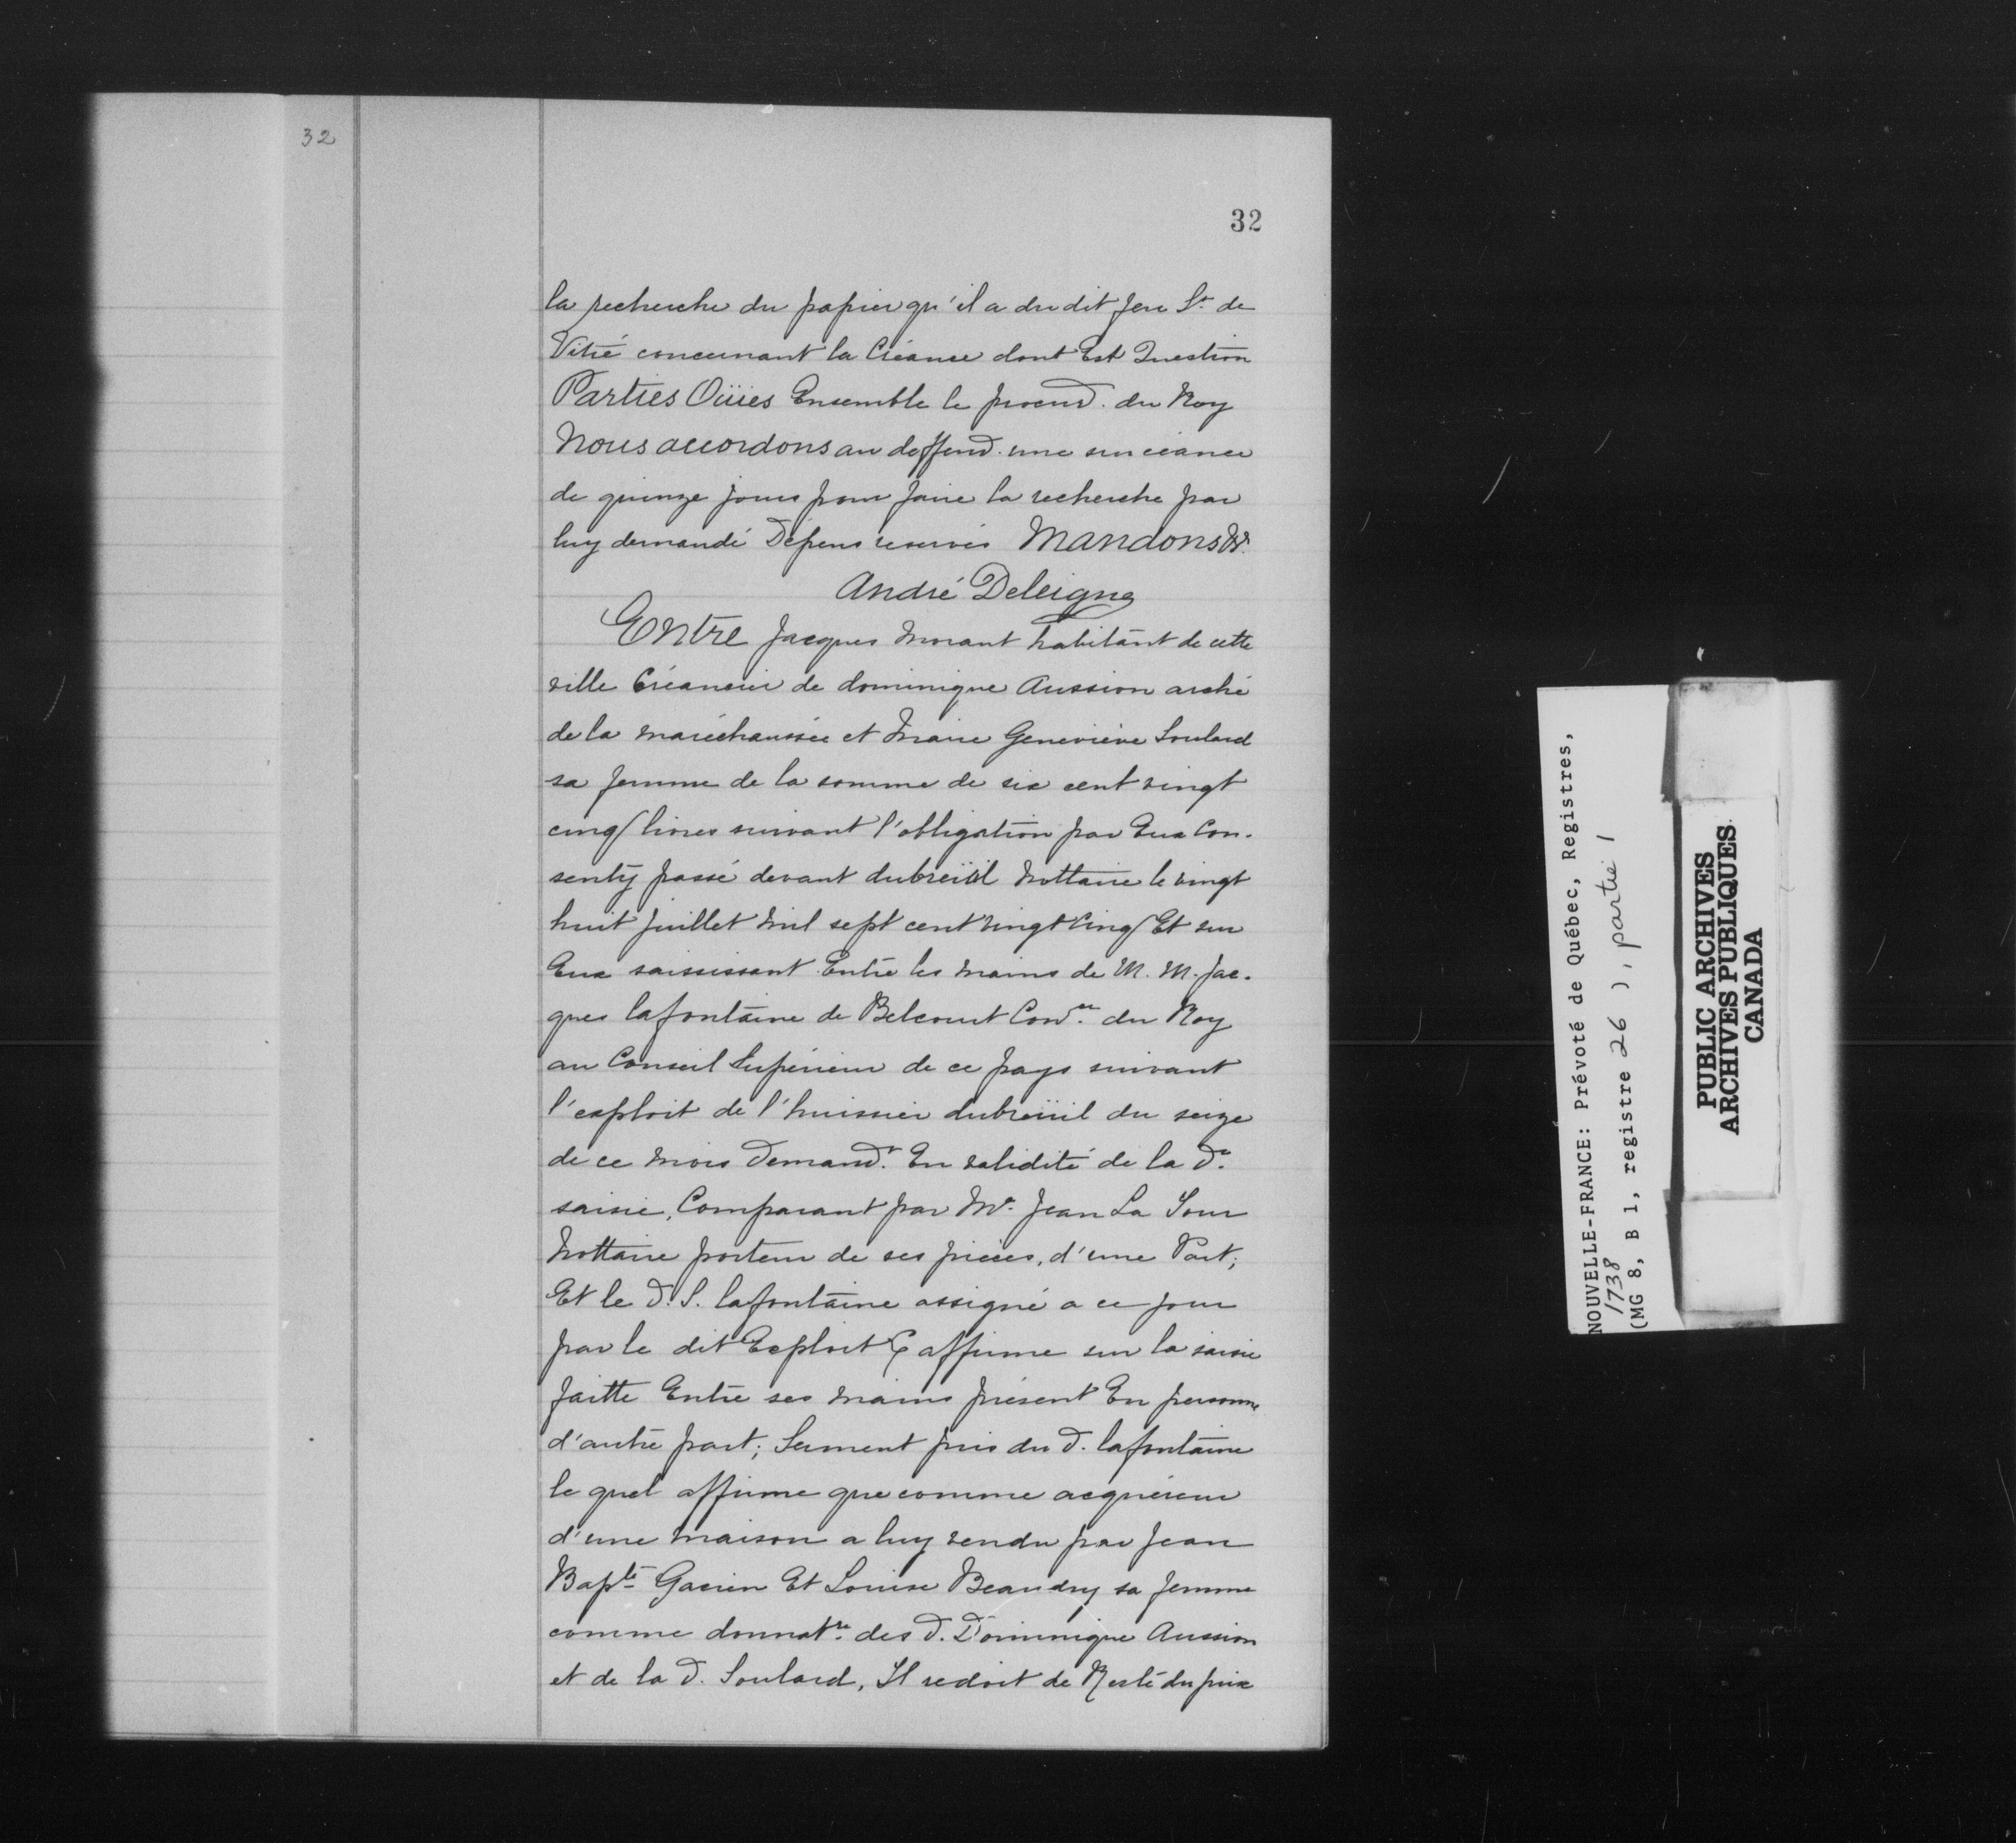 32
32
la recherche du papier qu'il a du dit feu Sr. de
Vitré concernant la Créance dont Est Question
Parties Oüies Ensemble le procurr. du Roy
Nous accordons au deffendr. une surcéance
de quinze jours pour faire la recherche par
luy demandé Dépens reservés Mandons &.
André Deleigne
Entre Jacques Morant habitant de cette
ville Créancier de dominique Aussion arché
de la maréchaussée et Marie Geneviève Soulard
sa femme de la somme de six cent vingt
cinq livres suivant l'obligation par Eux Con-
senty passé devant dubreüil Nottaire le vingt
huit juillet Mil sept cent vingt Cinq Et sur
Eux saississant Entre les mains de M. M. Jac-
ques lafontaine de Belcourt Conser. du Roy
au Conseil Supérieur de ce pays suivant
l'exploit de l'huissier dubreüil du seize
de ce mois Demandr. En validité de la de.
saisie, Comparant par Me. Jean La Tour
Nottaire porteur de ses pièces, d'une Part;
Et le d. S. lafontaine assigné a ce jour
par le dit Exploit P affirme sur la saisie
faitte Entre ses mains présent En personne
d'autre part; Serment pris du d. lafontaine
le quel affirme que comme acquéreur
d'une Maison a luy vendu par Jean
Bapte. Gacien Et Louise Beaudry sa femme
comme donnatre. des d. Dominique Aussion
et de la d. Soulard, Il redoit de Reste du prix
NOUVELLE-FRANCE: Prévoté de Québec, Registres,
1738
(MG 8, B 1, registre 26 ), partie 1
PUBLIC ARCHIVES
ARCHIVES PUBLIQUES
CANADA